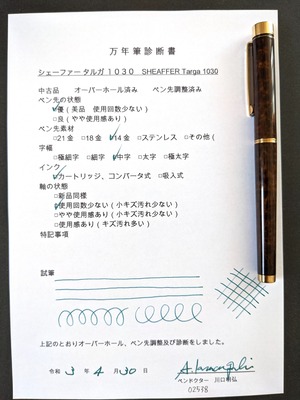 万年筆診断書
シェーファー タルガ 1030 SHEAFFER Targa 1030
中古品 オーバーホール済み ペン先調整済み
ペン先の状態
☑優(美品 使用回数少ない)
□良(やや使用感あり)
ペン先素材
□21金 □18金 ☑14金 □ステンレス □その他(
字幅
□極細字 □細字 ☑中字 □太字 □極太字
インク
☑カートリッジ、コンバータ式 □吸入式
軸の状態
□新品同様
☑使用回数少ない(小キズ汚れ少ない)
□やや使用感あり(小キズ汚れ少ない)
□使用感あり(キズ汚れ多い)
特記事項
試筆
上記のとおりオーバーホール、ペン先調整及び診断をしました。
令和 3 年 4 月 30 日
ペンドクター 川口明弘
02538